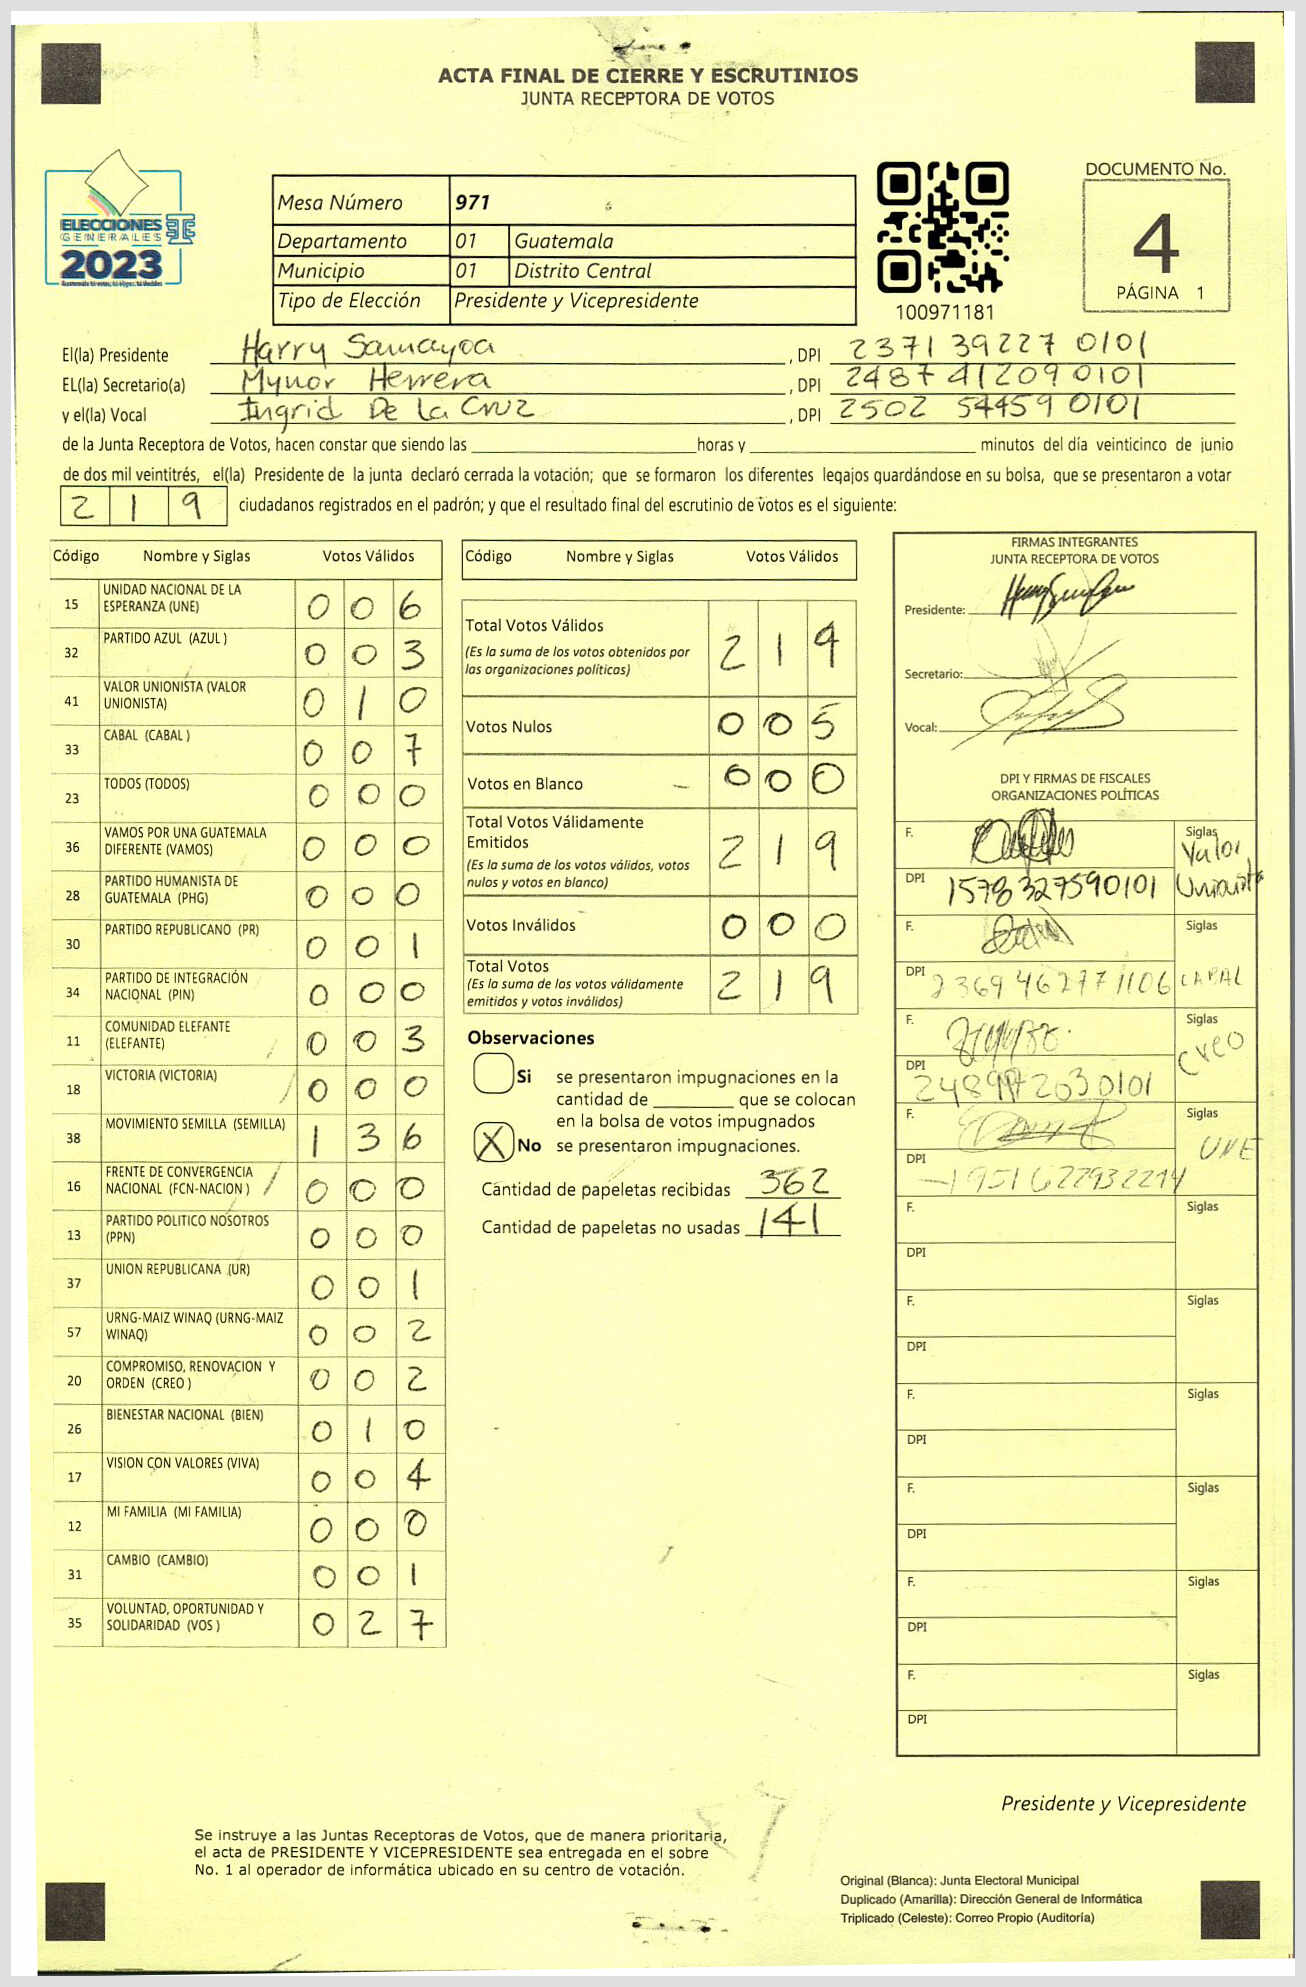 ACTA FINAL DE CIERRE Y ESCRUTINIOS
JUNTA RECEPTORA DE VOTOS
ELECCIONES
GENERALES
2023
Mesa Número 971
Departamento 01 Guatemala
Municipio 01 Distrito Central
Tipo de Elección Presidente y Vicepresidente
100971181
DOCUMENTO No.
4
PÁGINA 1
El(la) Presidente Harry Samayoa , DPI 2371 39227 0101
EL(la) Secretario(a) Mynor Herrera , DPI 2487 41209 0101
y el(la) Vocal Ingrid De La Cruz , DPI 2502 54459 0101
de la Junta Receptora de Votos, hacen constar que siendo las horas y minutos del día veinticinco de junio
de dos mil veintitrés, el(la) Presidente de la junta declaró cerrada la votación; que se formaron los diferentes legajos guardándose en su bolsa, que se presentaron a votar
219 ciudadanos registrados en el padrón; y que el resultado final del escrutinio de votos es el siguiente:
Código Nombre y Siglas Votos Válidos
15 UNIDAD NACIONAL DE LA ESPERANZA (UNE) 0 0 6
32 PARTIDO AZUL (AZUL ) 0 0 3
41 VALOR UNIONISTA (VALOR UNIONISTA) 0 1 0
33 CABAL (CABAL ) 0 0 7
23 TODOS (TODOS) 0 0 0
36 VAMOS POR UNA GUATEMALA DIFERENTE (VAMOS) 0 0 0
28 PARTIDO HUMANISTA DE GUATEMALA (PHG) 0 0 0
30 PARTIDO REPUBLICANO (PR) 0 0 1
34 PARTIDO DE INTEGRACIÓN NACIONAL (PIN) 0 0 0
11 COMUNIDAD ELEFANTE (ELEFANTE) 0 0 3
18 VICTORIA (VICTORIA) 0 0 0
38 MOVIMIENTO SEMILLA (SEMILLA) 1 3 6
16 FRENTE DE CONVERGENCIA NACIONAL (FCN-NACION ) 0 0 0
13 PARTIDO POLITICO NOSOTROS (PPN) 0 0 0
37 UNION REPUBLICANA (UR) 0 0 1
57 URNG-MAIZ WINAQ (URNG-MAIZ WINAQ) 0 0 2
20 COMPROMISO, RENOVACION Y ORDEN (CREO ) 0 0 2
26 BIENESTAR NACIONAL (BIEN) 0 1 0
17 VISION CON VALORES (VIVA) 0 0 4
12 MI FAMILIA (MI FAMILIA) 0 0 0
31 CAMBIO (CAMBIO) 0 0 1
35 VOLUNTAD, OPORTUNIDAD Y SOLIDARIDAD (VOS ) 0 2 7
Código Nombre y Siglas Votos Válidos
Total Votos Válidos 2 1 9
(Es la suma de los votos obtenidos por
las organizaciones políticas)
Votos Nulos 0 0 5
Votos en Blanco 0 0 0
Total Votos Válidamente
Emitidos 2 1 9
(Es la suma de los votos válidos, votos
nulos y votos en blanco)
Votos Inválidos 0 0 0
Total Votos 2 1 9
(Es la suma de los votos válidamente
emitidos y votos inválidos)
Observaciones
Si se presentaron impugnaciones en la
cantidad de que se colocan
en la bolsa de votos impugnados
X No se presentaron impugnaciones.
Cantidad de papeletas recibidas 362
Cantidad de papeletas no usadas 141
FIRMAS INTEGRANTES
JUNTA RECEPTORA DE VOTOS
Presidente:
Secretario:
Vocal:
DPI Y FIRMAS DE FISCALES
ORGANIZACIONES POLÍTICAS
F. Siglas Valor Unionista
DPI 1578327590101
F. Siglas CABAL
DPI 2369462771106
F. Siglas Creo
DPI
F. Siglas UNE
DPI
F. Siglas
DPI
F. Siglas
DPI
F. Siglas
DPI
F. Siglas
DPI
F. Siglas
DPI
F. Siglas
DPI
Presidente y Vicepresidente
Se instruye a las Juntas Receptoras de Votos, que de manera prioritaria,
el acta de PRESIDENTE Y VICEPRESIDENTE sea entregada en el sobre
No. 1 al operador de informática ubicado en su centro de votación.
Original (Blanca): Junta Electoral Municipal
Duplicado (Amarilla): Dirección General de Informática
Triplicado (Celeste): Correo Propio (Auditoría)